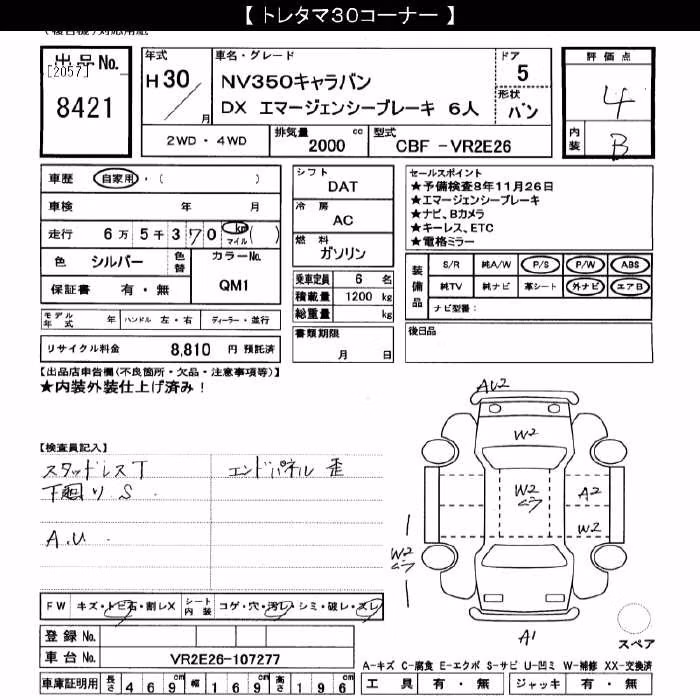 【 トレタマ30コーナー 】
出品No.
[2057]
8421
年式
H30
年
月
車名・グレード
NV350キャラバン
DX エマージェンシーブレーキ 6人
ドア
5
形状
バン
2WD・4WD
排気量
2000 cc
型式
CBF -VR2E26
評価点
4
内装
B
車歴 自家用・( )
車検 年 月
走行 6万5千370 km マイル ( )
色 シルバー 色替
カラーNo.
QM1
保証書 有・無
モデル年式 年 ハンドル 左・右 ディーラー・並行
リサイクル料金 8,810 円 預託済
シフト
DAT
冷房
AC
燃料
ガソリン
乗車定員 6 名
積載量 1200 kg
総重量 kg
書類期限
月 日
セールスポイント
★予備検査8年11月26日
★エマージェンシーブレーキ
★ナビ、Bカメラ
★キーレス、ETC
★電格ミラー
装備品
S/R 純A/W P/S P/W ABS
純TV 純ナビ 革シート 外ナビ エアB
ナビ型番:
後日品
【出品店申告欄(不良箇所・欠品・注意事項等)】
★内装外装仕上げ済み!
【検査員記入】
スタッドレスT
下廻り S
A.U
エンドパネル 歪
AU2
W2
W2
A2
W2
W2
A1
スペア
FW キズ・トビ石・割レX シート内装 コゲ・穴・汚レ・シミ・破レ・スレ
登録No.
車台No. VR2E26-107277
車庫証明用 長さ 469cm 幅 169cm 高さ 196cm
A-キズ C-腐食 E-エクボ S-サビ U-凹ミ W-補修 XX-交換済
工具 有・無 ジャッキ 有・無